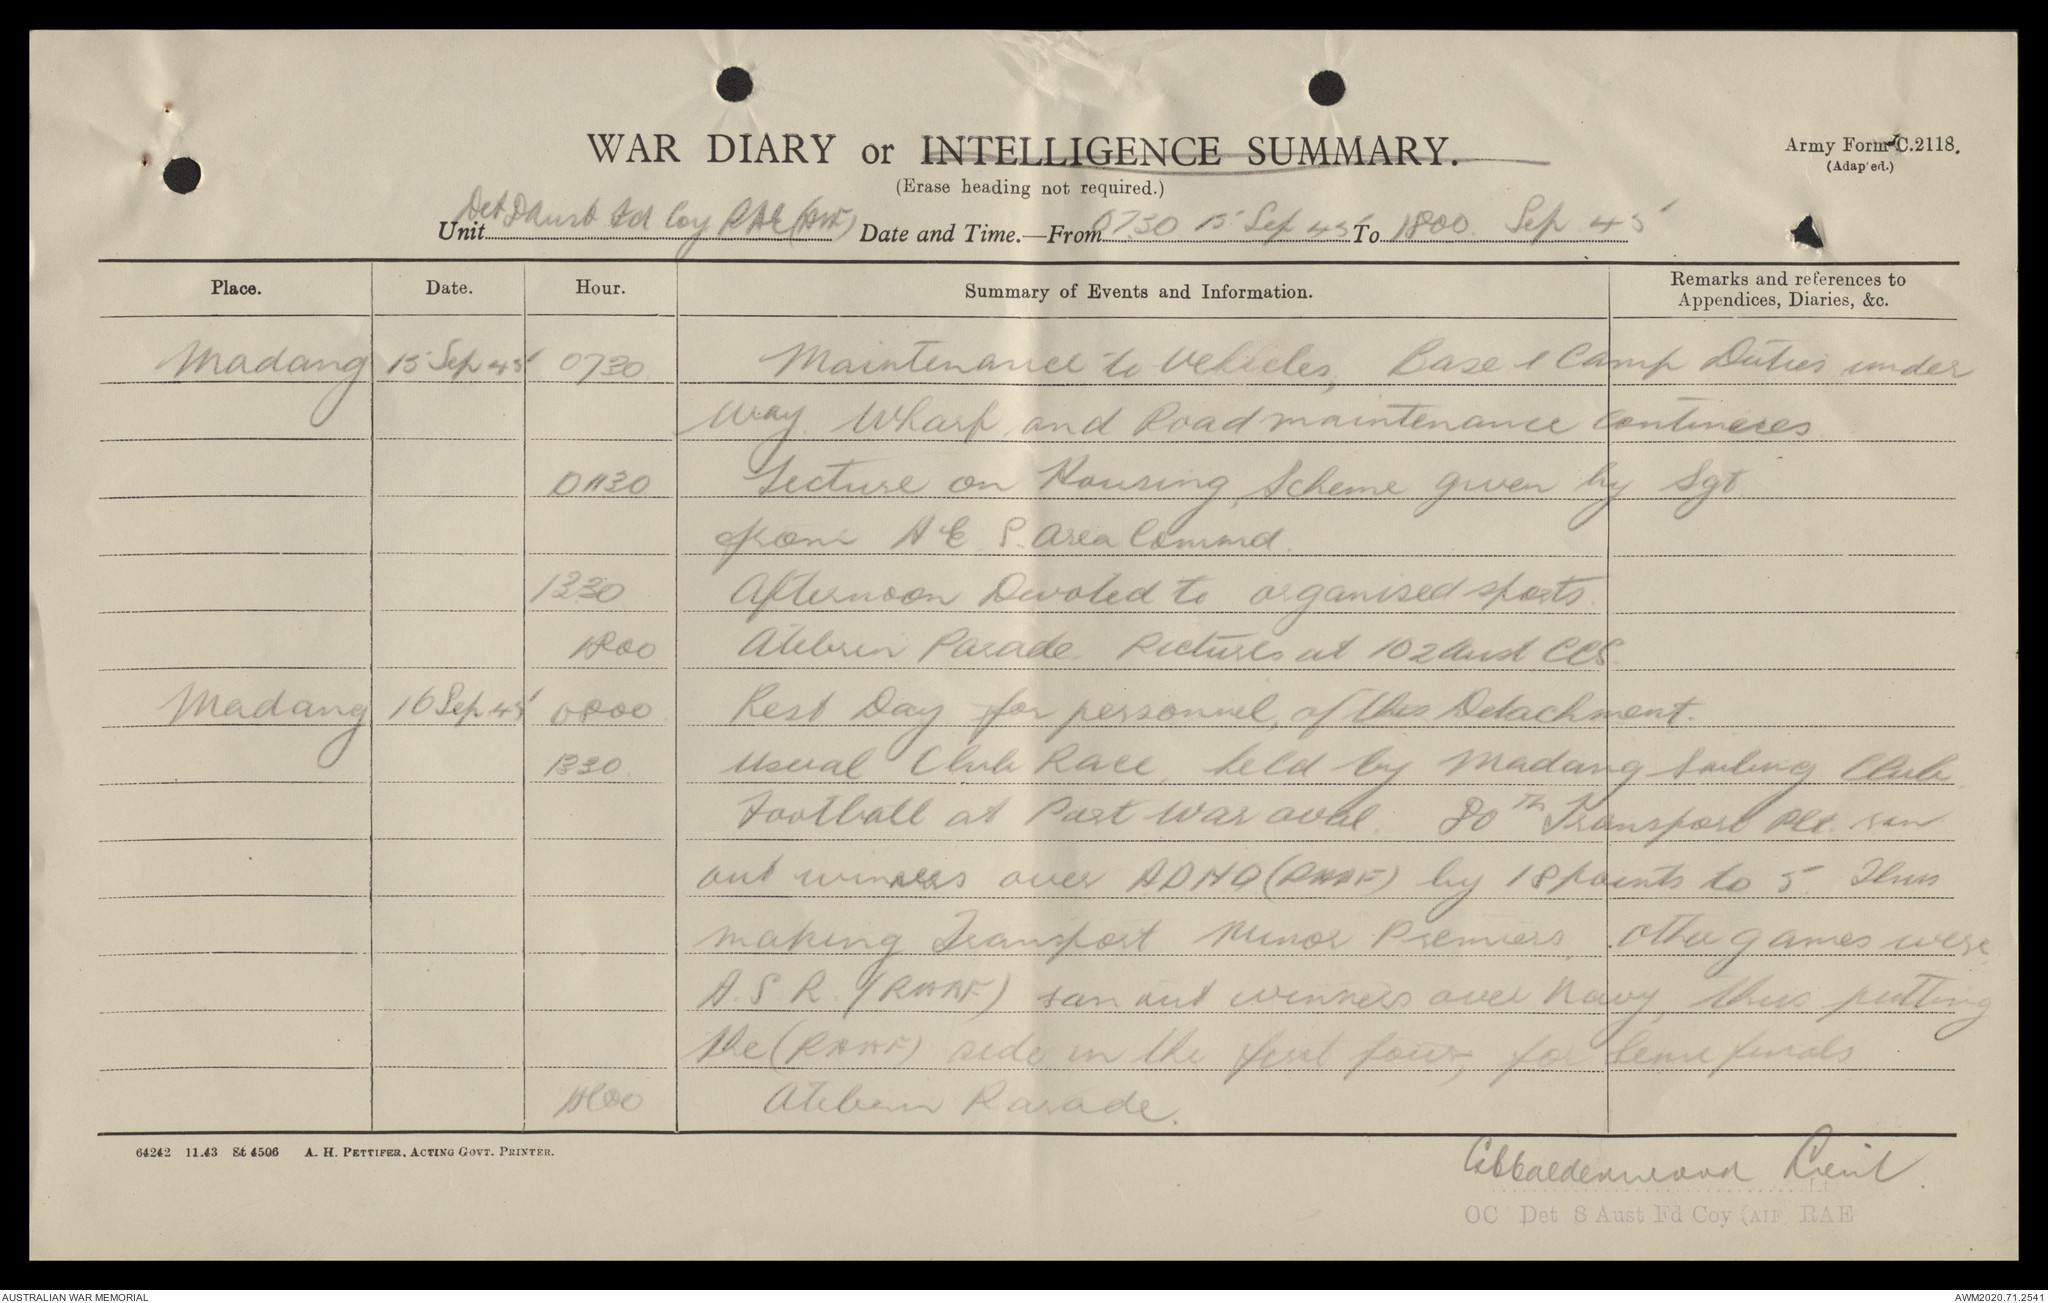 WAR DIARY or INTELLIGENCE SUMMARY.
Army Form C.2118.
(Adapted.)
(Erase heading not required.)
Unit Det 8 Aust Fd Coy RAE (AIF) Date and Time.—From 0730 15 Sep 45 To 1800 Sep 45
Place. Date. Hour. Summary of Events and Information. Remarks and references to Appendices, Diaries, &c.
Madang 15 Sep 45 0730 Maintenance to Vehicles, Base & Camp Duties under
way. Wharf and Road maintenance continues.
1130 Lecture on Housing Scheme given by Sgt.
from A E S. Area Commd.
1330 Afternoon Devoted to organised sports.
1800 Atebrin Parade. Pictures at 102 Aust CCS.
Madang 16 Sep 45 0800 Rest Day for personnel, of this Detachment.
1330 Usual Club Race, held by Madang Sailing Club
Football at Post War oval. 80th Transport Plt. ran
out winners over ADHQ (RAAF) by 18 points to 5. Thus
making Transport Minor Premiers. Other games were
A.S.R. (RAAF) ran out winners over Navy, thus putting
the (RAAF) side in the first four, for Semi finals
1800 Atebrin Parade.
64242 11.43 St 4506 A. H. PETTIFER, ACTING GOVT. PRINTER.
Calderwood Lieut.
Lt
OC Det 8 Aust Fd Coy (AIF) RAE
AUSTRALIAN WAR MEMORIAL
AWM2020.71.2541